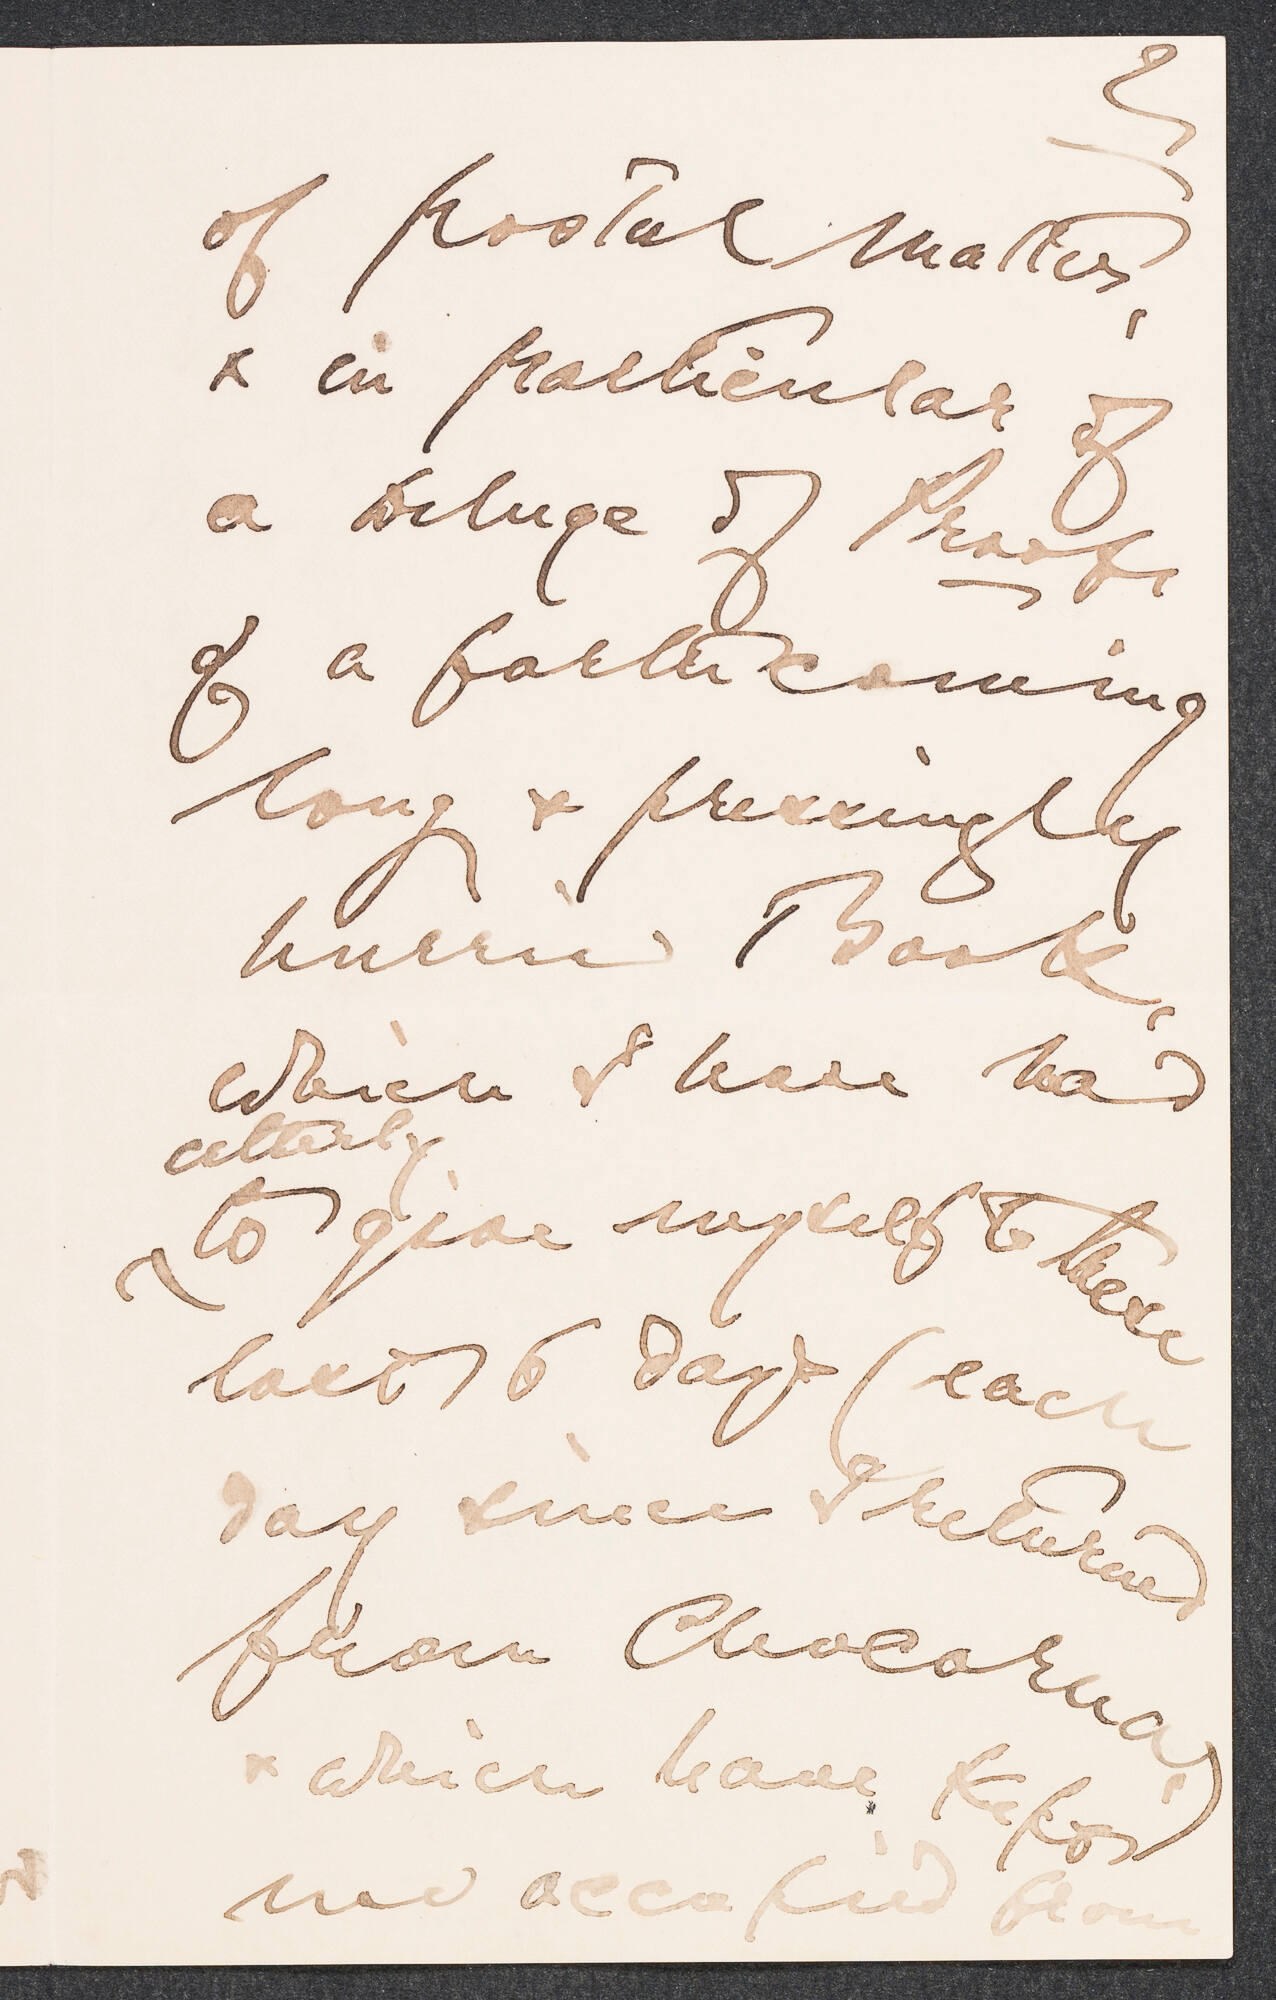 of postal matter,
& in particular of
a deluge of Proofs
of a forthcoming
long & pressingly
hurried Book,
which I have had
utterly
to give myself to these
last 6 days (each
day since I returned
from Chocorua,)
& which have kept
me occupied from